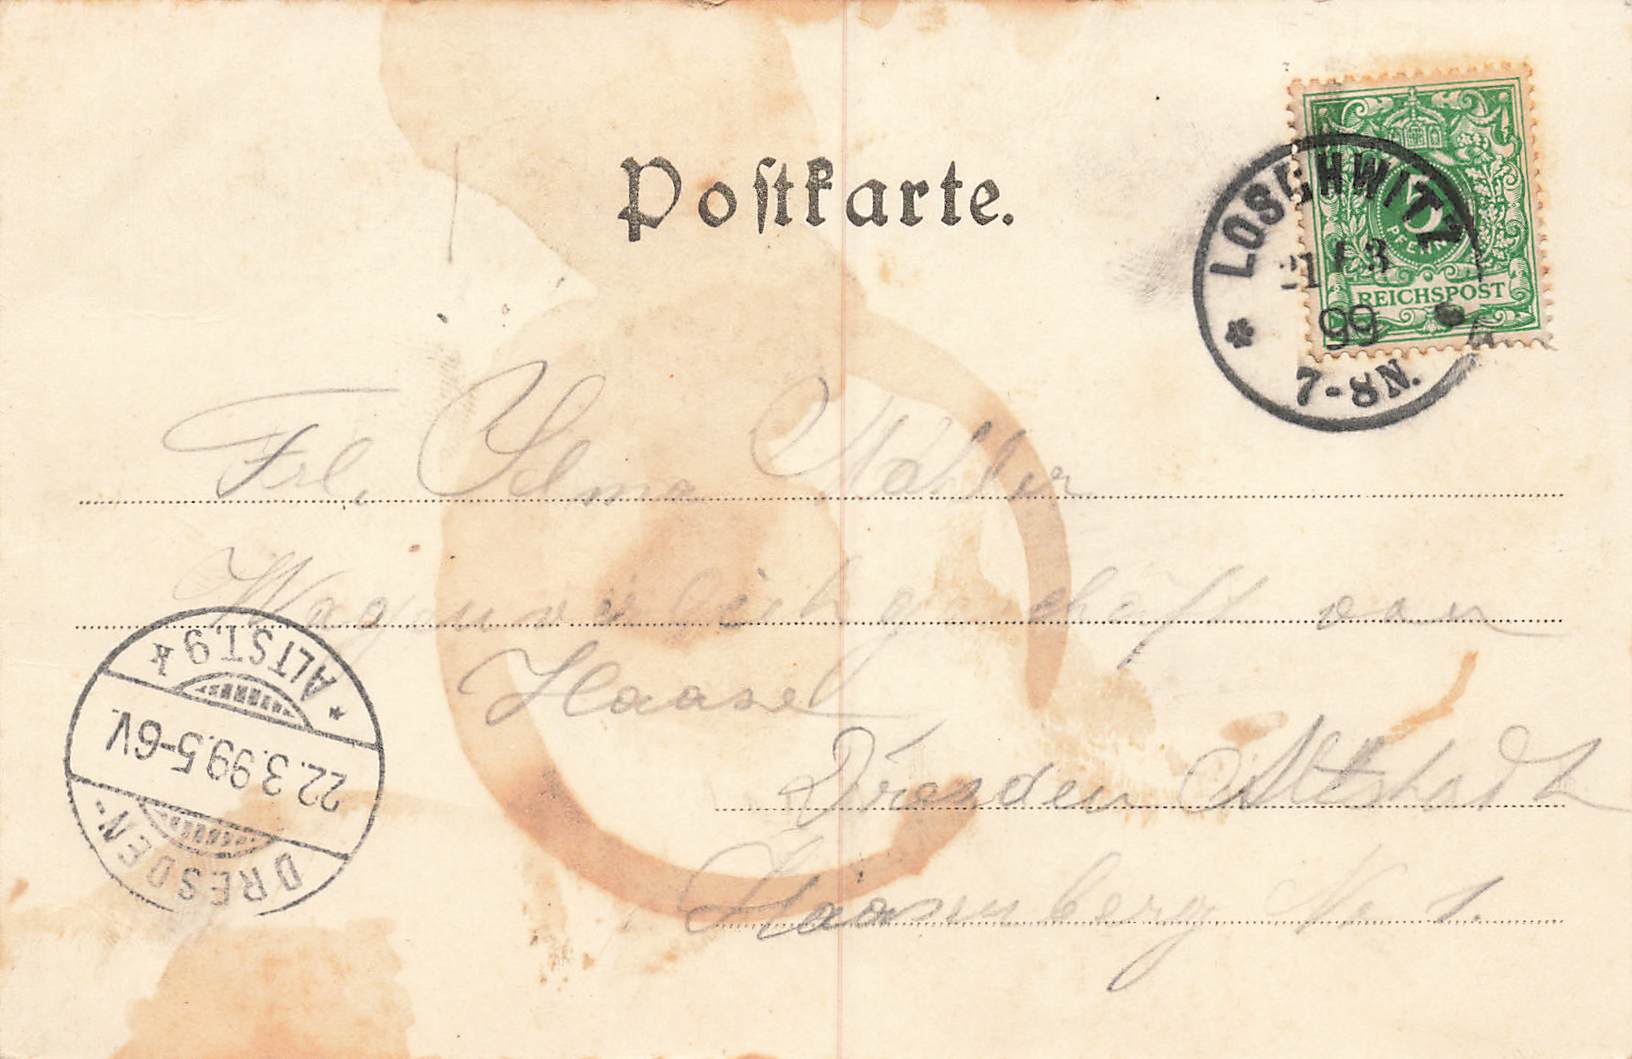 Postkarte.
LOSCHWITZ
21 3
99
7-8N.
5
PFENNIG
REICHSPOST
Frl. Selma
Wagenverleihgeschäft von
Haase
Dresden Altstadt
N. 1.
DRESDEN-
22.3.99.5-6V.
* ALTST.9k